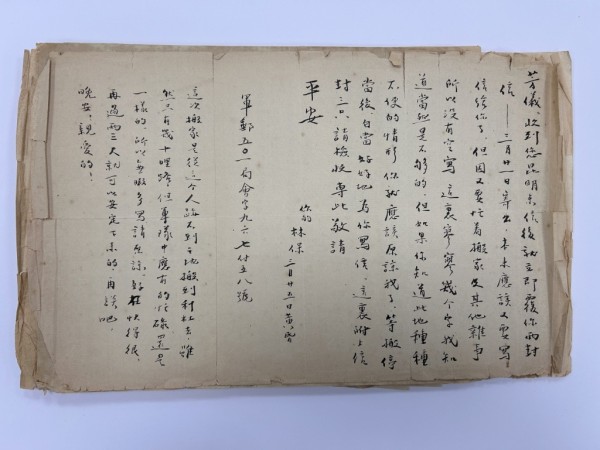 芳儀：收到您昆明來信後就立即覆你兩封
信——三月廿一日寄出，本來應該又要寫
信給你了，但因又要忙着搬家及其他雜事
所以沒有空寫，這裏寥寥幾个字我知
道當然是不够的，但如果你知道此地種種
不便的情形你就應該原諒我了，等搬停
當後，自當好好地為你寫信，這裏附上信
封三只，請檢收專此敬請
平安
你的林保
三月廿五日黃昏
軍郵五〇一局會字九六七付五八號
這次搬家是從這个人跡不到之地搬到利杜去，雖
然只有幾十哩路，但專隊中應有的忙碌還是
一樣的，所以無暇多寫請原諒。好在快得很，
再過兩三天就可以安定下來的，再談吧，
晚安，親愛的！